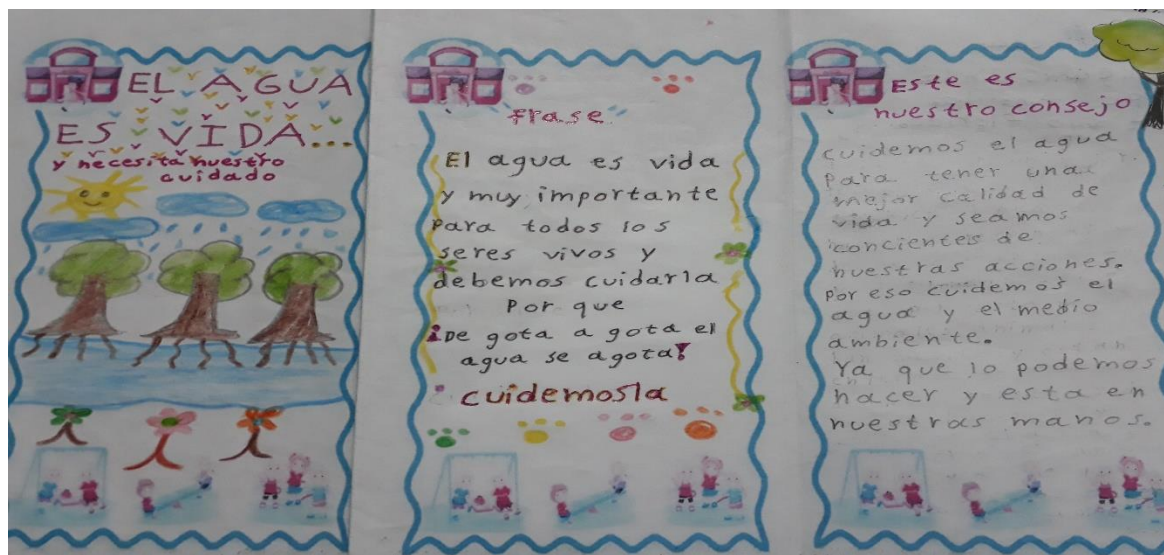 EL AGUA
ES VIDA...
y necesita nuestro
cuidado
frase
El agua es vida
y muy importante
para todos los
seres vivos y
debemos cuidarla
Por que
¡De gota a gota el
agua se agota!
cuidemosla
Este es
nuestro consejo
cuidemos el agua
Para tener una
mejor calidad de
vida y seamos
concientes de
nuestras acciones.
Por eso cuidemos el
agua y el medio
ambiente.
Ya que lo podemos
hacer y esta en
nuestras manos.